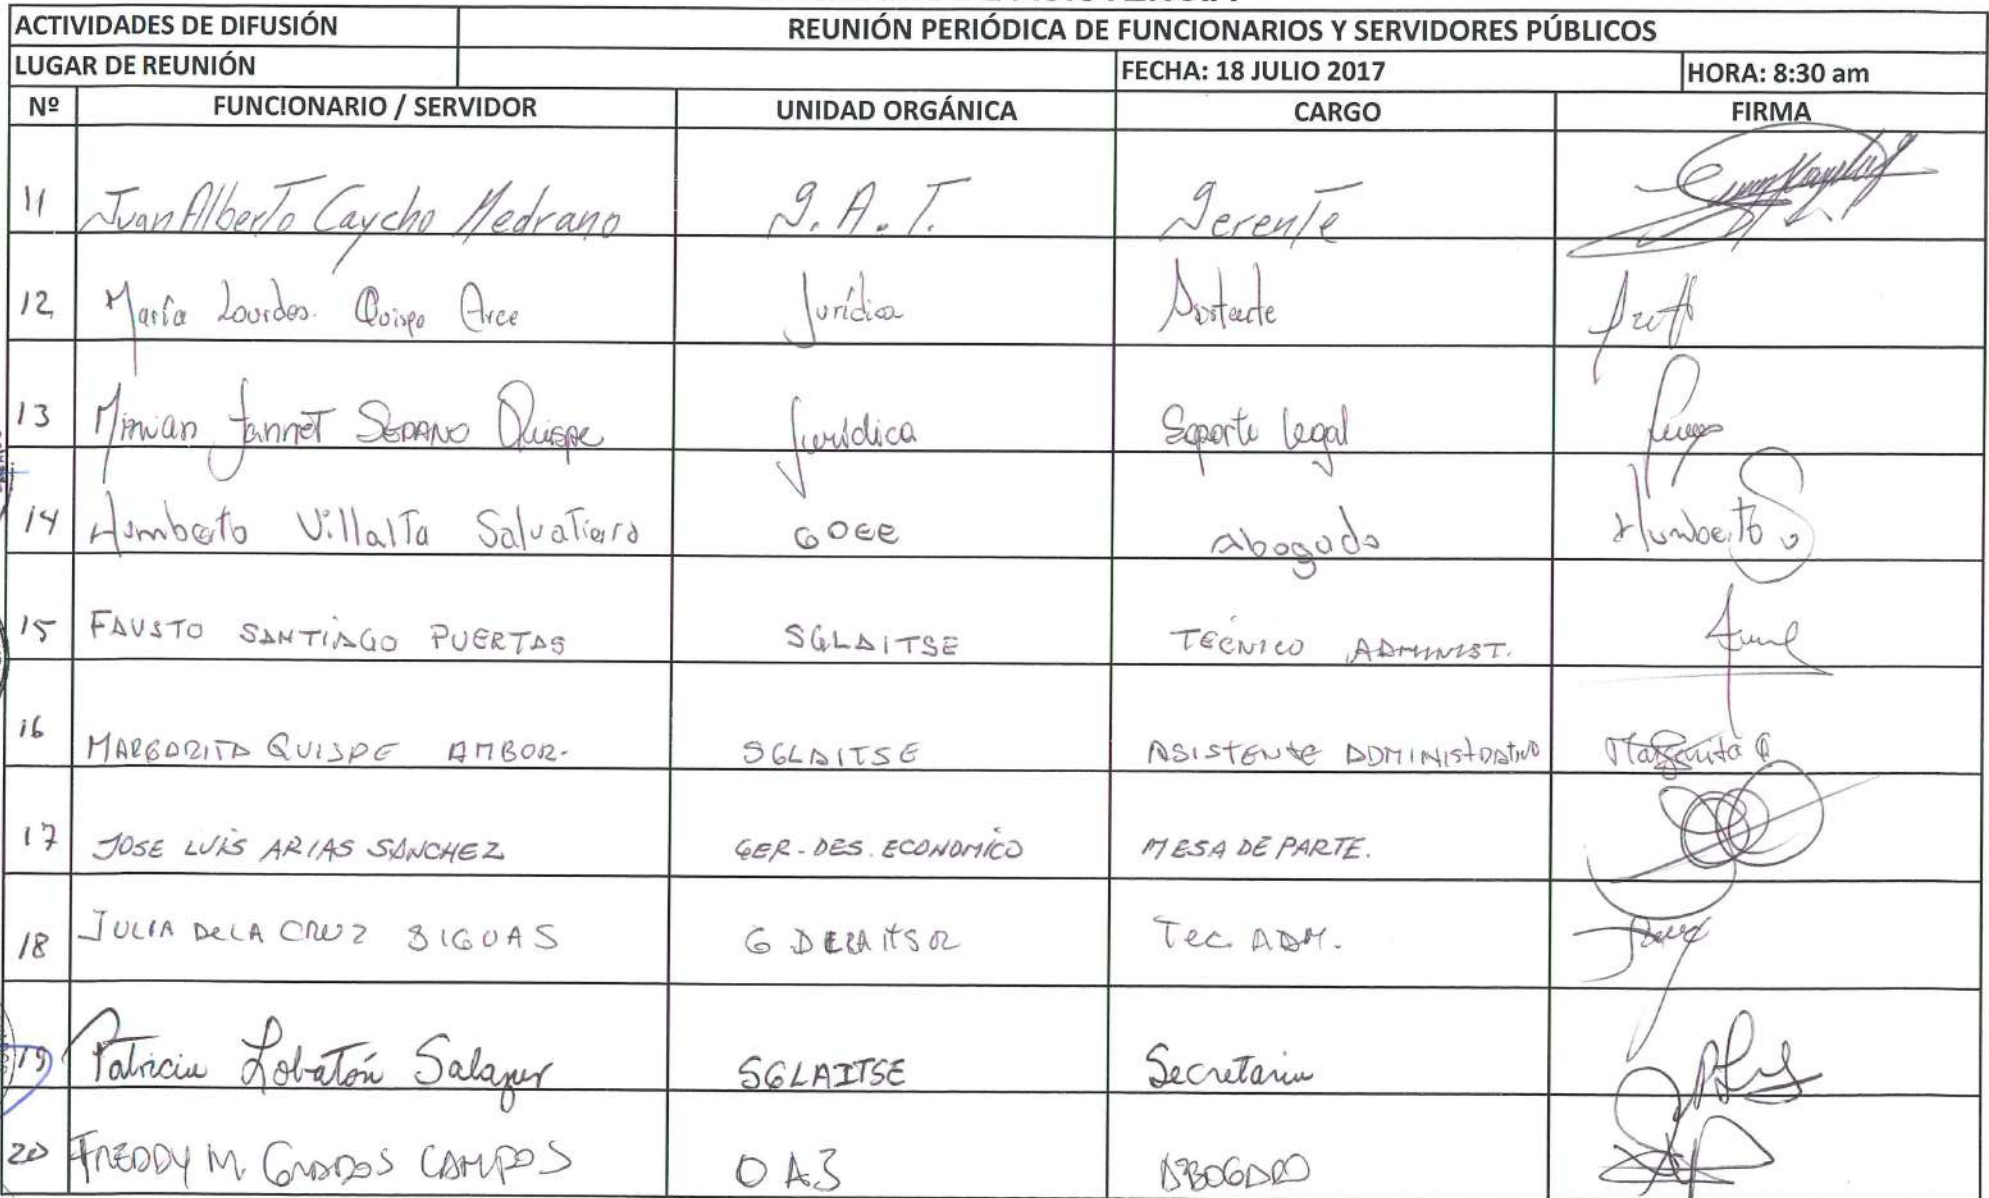 ACTIVIDADES DE DIFUSIÓN REUNIÓN PERIÓDICA DE FUNCIONARIOS Y SERVIDORES PÚBLICOS
LUGAR DE REUNIÓN FECHA: 18 JULIO 2017 HORA: 8:30 am
Nº FUNCIONARIO / SERVIDOR UNIDAD ORGÁNICA CARGO FIRMA
11 Juan Alberto Caycho Medrano G.A.T. Gerente
12 María Lourdes Quispe Arce Jurídica
13 Jannet Quispe Jurídica Soporte legal
14 Humberto Villalta Salvatierra Abogado Humberto
15 FAUSTO SANTIAGO PUERTAS SGLAITSE TECNICO ADMINIST.
16 MARGARITA QUISPE AMBOR- SGLAITSE ASISTENTE ADMINISTRATIVO Margarita Q
17 JOSE LUIS ARIAS SANCHEZ GER-DES. ECONOMICO MESA DE PARTE.
18 JULIA DE LA CRUZ SIGUAS TEC. ADM.
19 Patricia Lobatón Salazar SGLAITSE Secretaria
20 FREDDY M. GRADOS CAMPOS OAJ ABOGADO